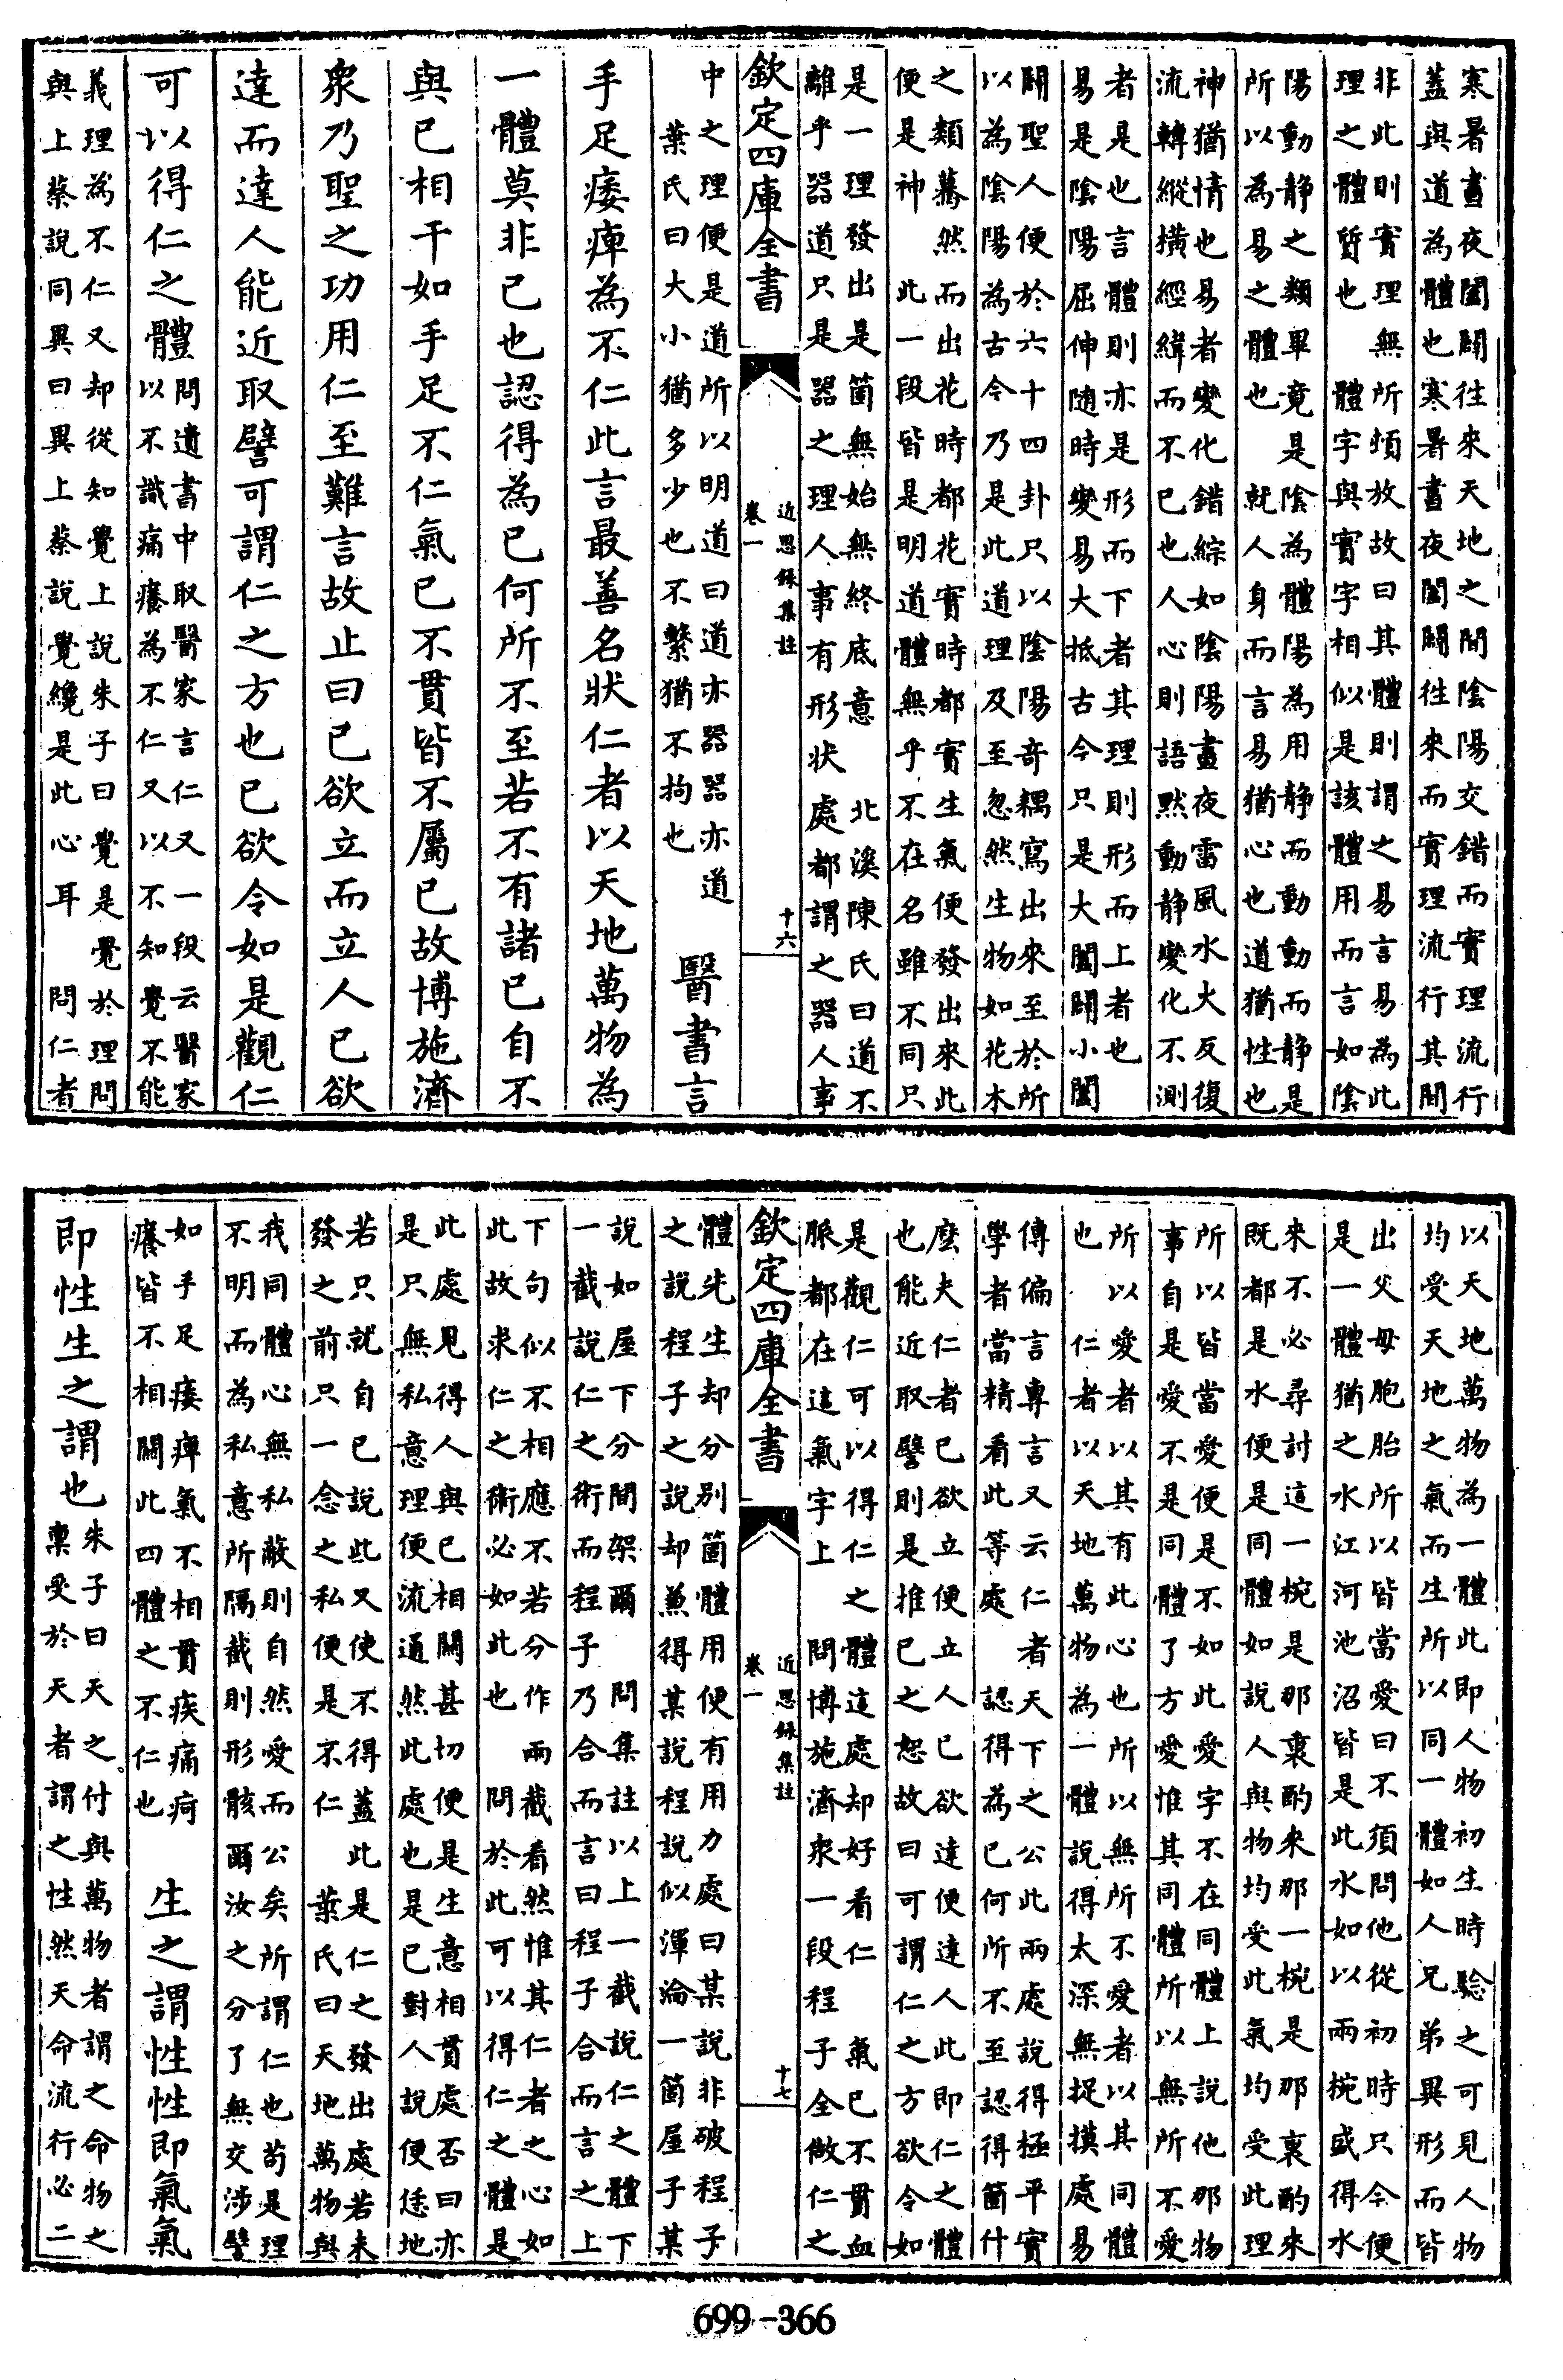 寒暑晝夜闔闢往來天地之間陰陽交錯而實理流行
蓋與道為體也寒暑晝夜闔闢往來而實理流行其間
非此則實理無所頓放故曰其體則謂之易言易為此
理之體質也　體字與實字相似是該體用而言如陰
陽動靜之類畢竟是陰為體陽為用靜而動動而靜是
所以為易之體也　就人身而言易猶心也道猶性也
神猶情也易者變化錯綜如陰陽晝夜雷風水火反復
流轉縱橫經緯而不已也人心則語默動靜變化不測
者是也言體則亦是形而下者其理則形而上者也
易是陰陽屈伸隨時變易大抵古今只是大闔闢小闔
闢聖人便於六十四卦只以陰陽奇耦寫出來至於所
以為陰陽為古今乃是此道理及至忽然生物如花木
之類驀然而出花時都花實時都實生氣便發出來此
便是神　此一段皆是明道體無乎不在名雖不同只
是一理發出是箇無始無終底意　北溪陳氏曰道不
離乎器道只是器之理人事有形狀處都謂之器人事
欽定四庫全書
近思錄集註
卷一
十六
中之理便是道所以明道曰道亦器器亦道
葉氏曰大小猶多少也不繫猶不拘也
醫書言
手足痿痺為不仁此言最善名狀仁者以天地萬物為
一體莫非已也認得為已何所不至若不有諸已自不
與已相干如手足不仁氣已不貫皆不屬已故博施濟
衆乃聖之功用仁至難言故止曰已欲立而立人已欲
達而達人能近取譬可謂仁之方也已欲令如是觀仁
可以得仁之體
問遺書中取醫家言仁又一段云醫家
以不識痛癢為不仁又以不知覺不能
義理為不仁又却從知覺上說朱子曰覺是覺於理問
與上蔡說同異曰異上蔡說覺纔是此心耳　問仁者
以天地萬物為一體此即人物初生時驗之可見人物
均受天地之氣而生所以同一體如人兄弟異形而皆
出父母胞胎所以皆當愛曰不須問他從初時只今便
是一體猶之水江河池沼皆是此水如以兩椀盛得水
來不必尋討這一椀是那裏酌來那一椀是那裏酌來
既都是水便是同體如說人與物均受此氣均受此理
所以皆當愛便是不如此愛字不在同體上說他那物
事自是愛不是同體了方愛惟其同體所以無所不愛
所以愛者以其有此心也所以無所不愛者以其同體
也　仁者以天地萬物為一體說得太深無捉摸處易
傳偏言專言又云仁者天下之公此兩處說得極平實
學者當精看此等處　認得為已何所不至認得箇什
麼夫仁者已欲立便立人已欲達便達人此即仁之體
也能近取譬則是推已之恕故曰可謂仁之方欲令如
是觀仁可以得仁之體這處却好看仁　氣已不貫血
脈都在這氣字上　問博施濟衆一段程子全做仁之
欽定四庫全書
近思錄集註
卷一
十七
體先生却分別箇體用便有用力處曰某說非破程子
之說程子之說却兼得某說程說似渾淪一箇屋子某
說如屋下分間架爾　問集註以上一截說仁之體下
一截說仁之術而程子乃合而言曰程子合而言之上
下句似不相應不若分作兩截看然惟其仁者之心如
此故求仁之術必如此也　問於此可以得仁之體是
此處見得人與已相關甚切便是生意相貫處否曰亦
是只無私意理便流通然此處也是已對人說便恁地
若只就自已說此又使不得蓋此是仁之發出處若未
發之前只一念之私便是不仁　葉氏曰天地萬物與
我同體心無私蔽則自然愛而公矣所謂仁也苟是理
不明而為私意所隔截則形骸爾汝之分了無交涉譬
如手足痿痺氣不相貫疾痛疴
癢皆不相關此四體之不仁也
生之謂性性即氣氣
即性生之謂也
朱子曰天之付與萬物者謂之命物之
稟受於天者謂之性然天命流行必二
699-366